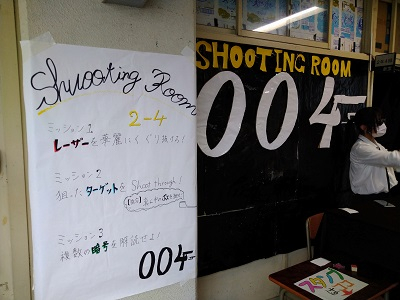 Shooting Room
2-4
ミッション1
レーザーを華麗にくぐり抜けろ!
ミッション2
狙ったターゲットをShoot through!
ミッション3
複数の暗号を解読せよ!
004
SHOOTING ROOM
004
スタッフ